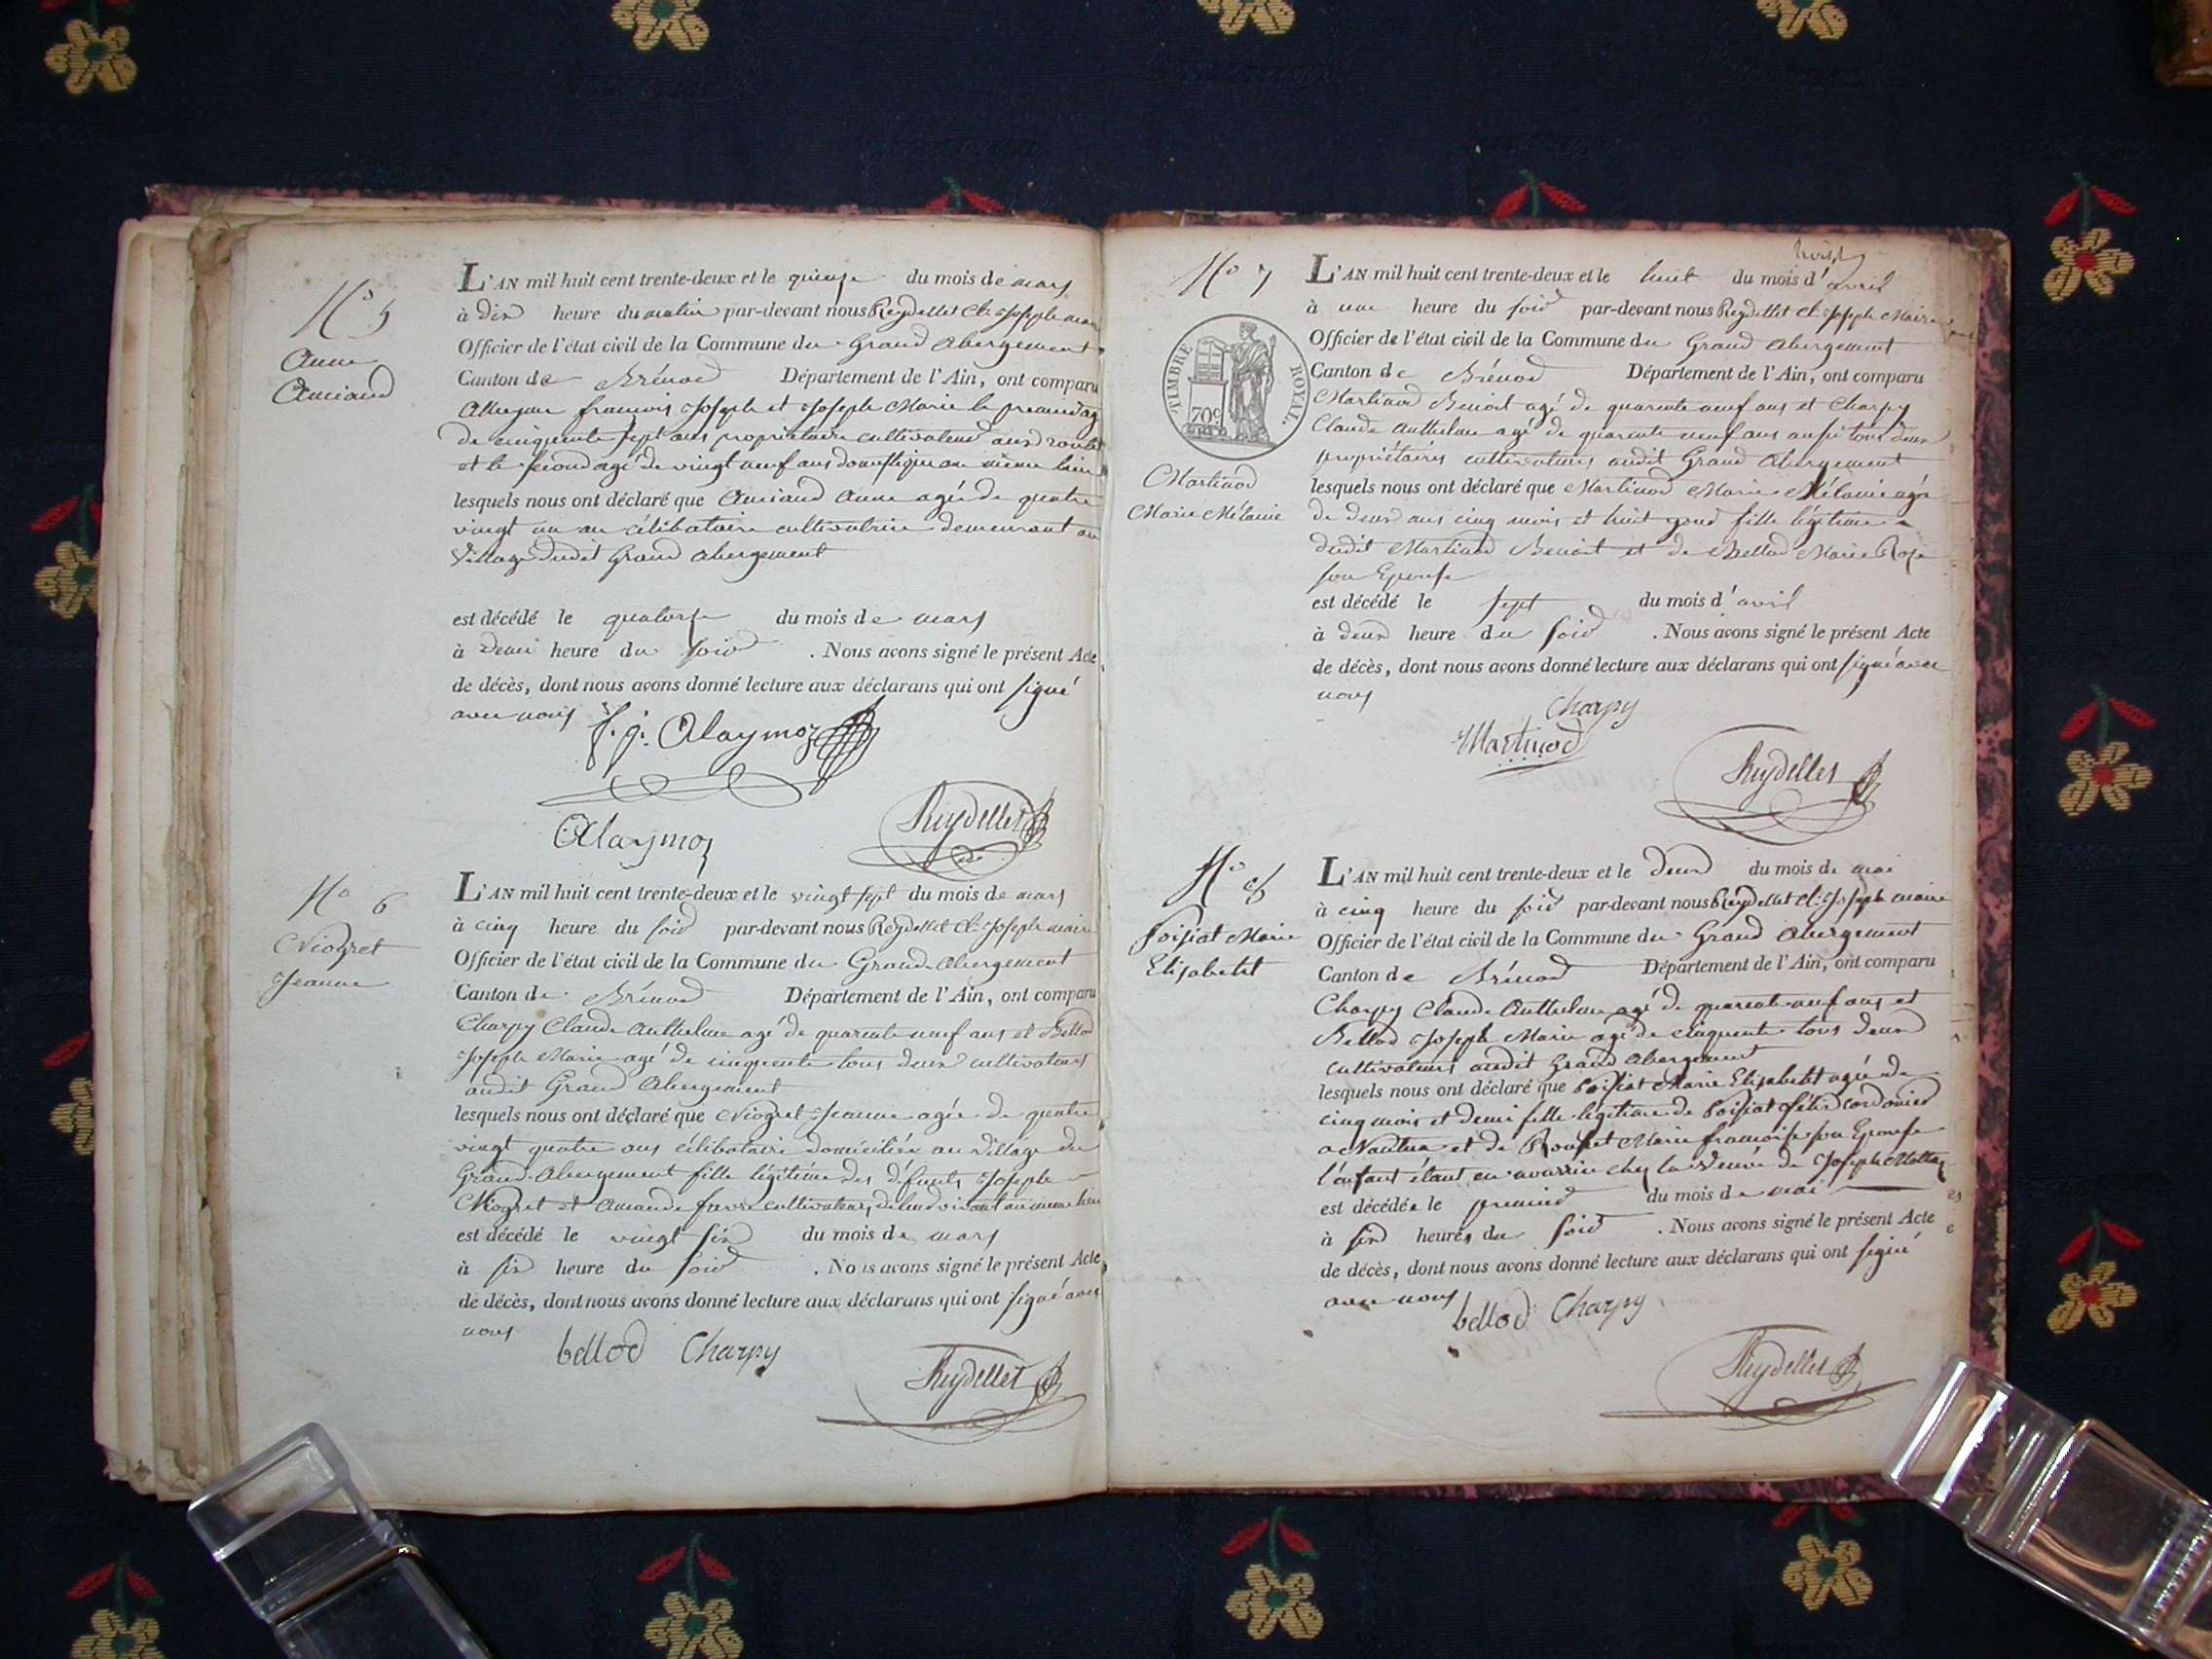 N° 5
Anne
Amiand
L'AN mil huit cent trente-deux et le quinze du mois de mars
à dix heure du matin par-devant nous Reydellet Cl. Joseph maire
Officier de l'état civil de la Commune du Grand Abergement
Canton de Brénod Département de l'Ain, ont comparu
françois Joseph et Joseph Marie le premier agé
de cinquante sept ans propriétaire cultivateur
et le second agé de vingt neuf ans domestique au même lieu
lesquels nous ont déclaré que Amiand Anne agée de quatre
vingt un an célibataire cultivatrice demeurant au
village dudit Grand Abergement
est décédé le quatorze du mois de mars
à demi heure du soir . Nous avons signé le présent Acte
de décès, dont nous avons donné lecture aux déclarans qui ont signé
avec nous
f. j. Alaymoz
Alaymoz
Reydellet
N° 6
Niogret
Jeanne
L'AN mil huit cent trente-deux et le vingt sept du mois de mars
à cinq heure du soir par-devant nous Reydellet Cl. Joseph maire
Officier de l'état civil de la Commune du Grand Abergement
Canton de Brénod Département de l'Ain, ont comparu
Charpy Claude Anthelme agé de quarante neuf ans et Bellod
Joseph Marie agé de cinquante tous deux cultivateurs
audit Grand Abergement
lesquels nous ont déclaré que Niogret Jeanne agée de quatre
vingt quatre ans célibataire domiciliée au village du
Grand Abergement fille légitime des défunts Joseph
Niogret et favre cultivateurs de leur vivant au même lieu
est décédé le vingt six du mois de mars
à six heure du soir . Nous avons signé le présent Acte
de décès, dont nous avons donné lecture aux déclarans qui ont signé avec
nous
bellod Charpy
Reydellet
N° 7
TIMBRE ROYAL
70 c
Martinod
Marie Mélanie
L'AN mil huit cent trente-deux et le huit du mois d'avril
à une heure du soir par-devant nous Reydellet Cl. Joseph Maire
Officier de l'état civil de la Commune du Grand Abergement
Canton de Brénod Département de l'Ain, ont comparu
Martinod Benoit agé de quarante neuf ans et Charpy
Claude Anthelme agé de quarante neuf ans aussi tous deux
propriétaires cultivateurs audit Grand Abergement
lesquels nous ont déclaré que Martinod Marie Mélanie agée
de deux ans cinq mois et huit jour fille légitime
dudit Martinod Benoit et de Bellod Marie Rose
son Epouse
est décédé le sept du mois d'avril
à deux heure du soir . Nous avons signé le présent Acte
de décès, dont nous avons donné lecture aux déclarans qui ont signé avec
nous
Charpy
Martinod
Reydellet
N° 8
Poisiat Marie
Elisabeht
L'AN mil huit cent trente-deux et le deux du mois de mai
à cinq heure du soir par-devant nous Reydellet Cl. Joseph maire
Officier de l'état civil de la Commune du Grand Abergement
Canton de Brénod Département de l'Ain, ont comparu
Charpy Claude Anthelme agé de quarante neuf ans et
Bellod Joseph Marie agé de cinquante tous deux
cultivateurs audit Grand Abergement
lesquels nous ont déclaré que Poisiat Marie Elisabeht agée de
cinq mois et demi fille légitime de Poisiat félix cordonier
a Nantua et de Marie françoise son Epouse
l'enfant étant en nourrice chez la veuve de Joseph
est décédée le premier du mois de mai
à six heures du soir . Nous avons signé le présent Acte
de décès, dont nous avons donné lecture aux déclarans qui ont signé
avec nous
bellod Charpy
Reydellet